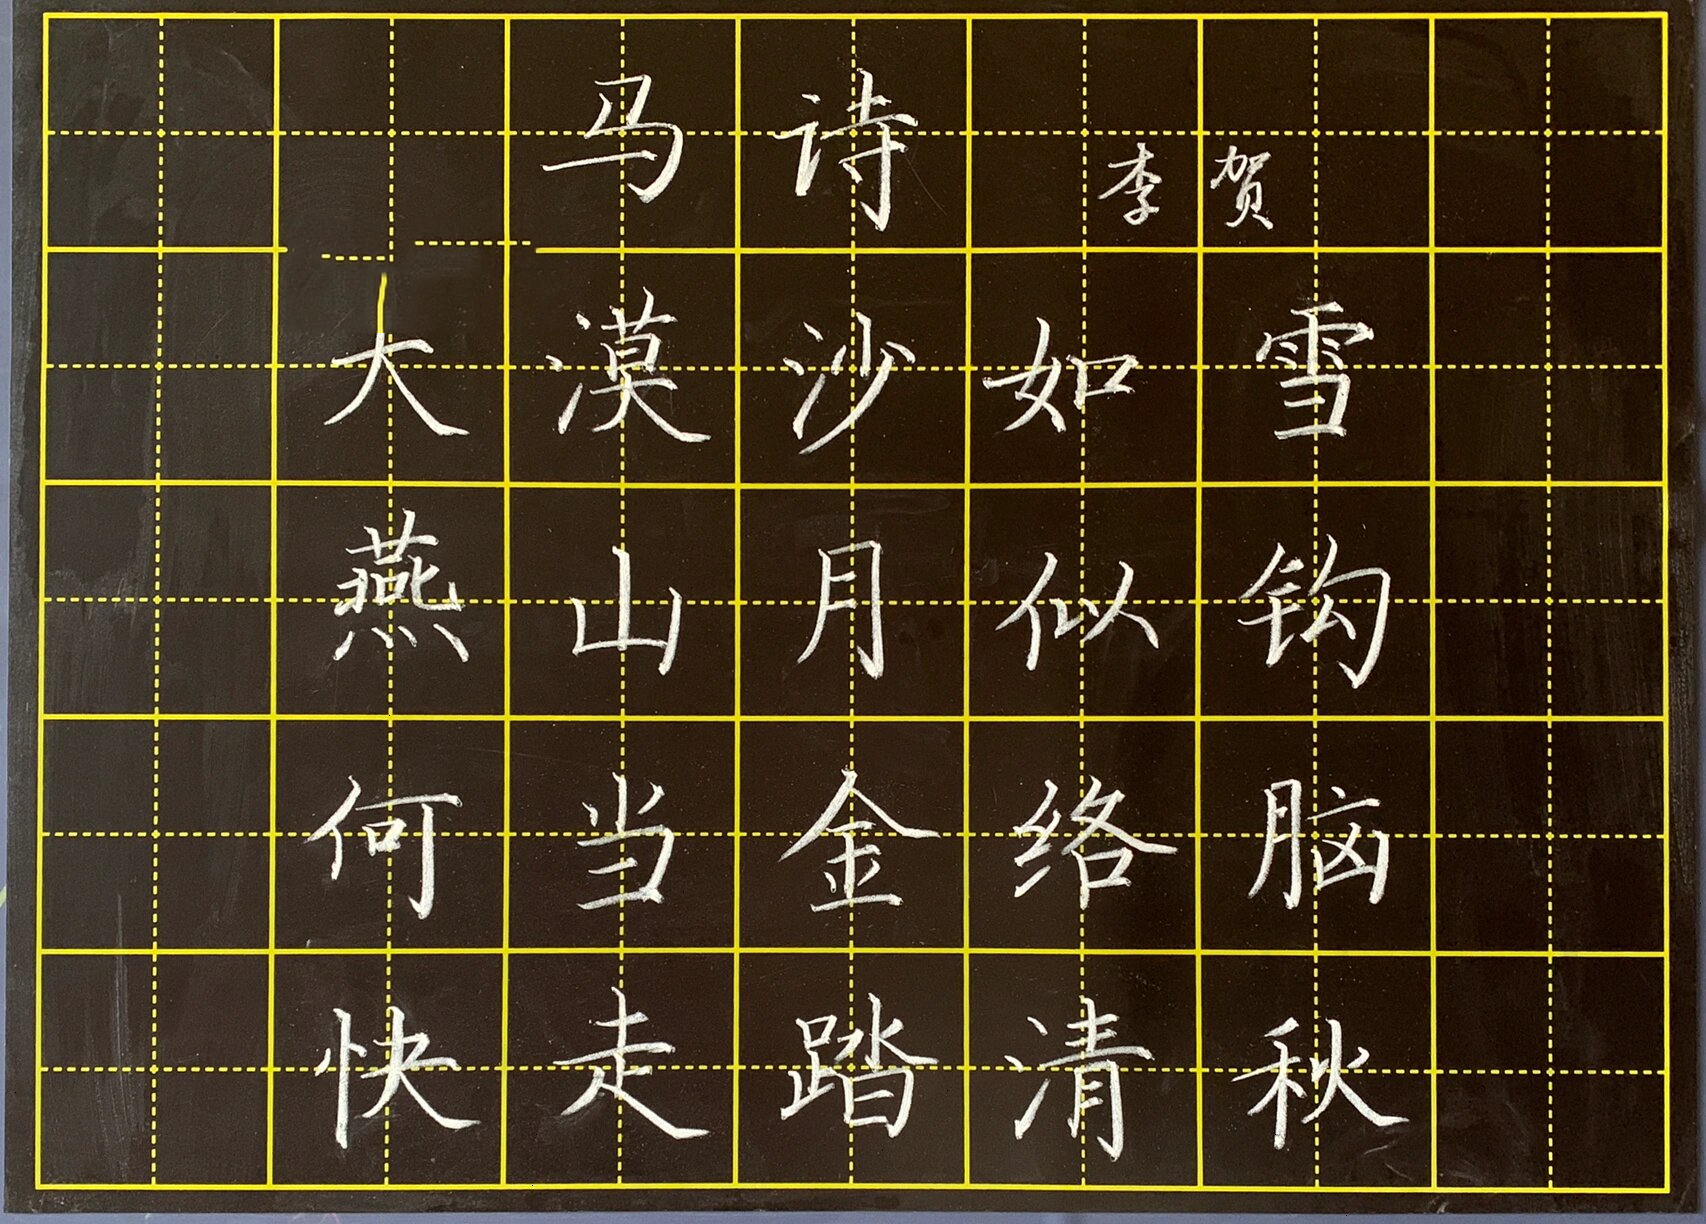 马诗 李贺
大漠沙如雪
燕山月似钩
何当金络脑
快走踏清秋